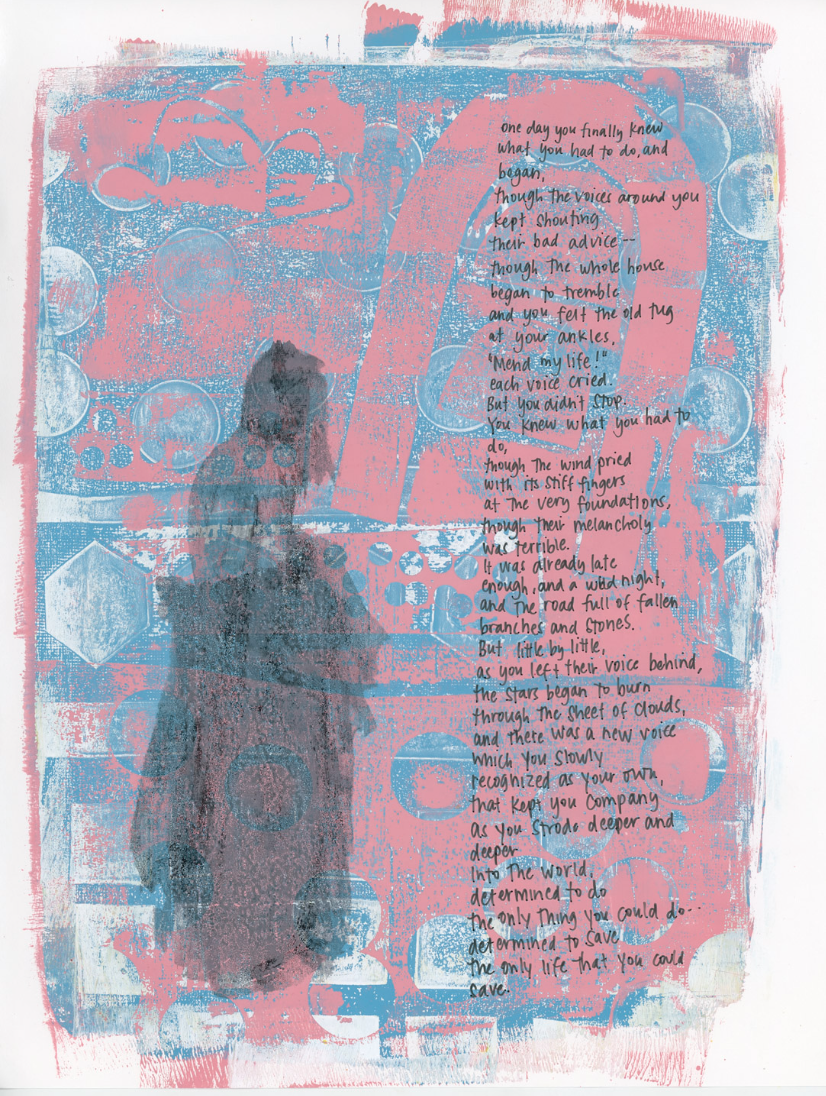 one day you finally knew
what you had to do, and
began,
though the voices around you
kept shouting
their bad advice--
though the whole house
began to tremble
and you felt the old tug
at your ankles,
"Mend my life!"
each voice cried.
But you didn't stop.
You knew what you had to
do,
though the wind pried
with its stiff fingers
at the very foundations,
though their melancholy
was terrible.
It was already late
enough, and a wild night,
and the road full of fallen
branches and stones.
But little by little,
as you left their voice behind,
the stars began to burn
through the sheet of clouds,
and there was a new voice
which you slowly
recognized as your own,
that kept you company
as you strode deeper and
deeper
into the world,
determined to do
the only thing you could do--
determined to save
the only life that you could
save.